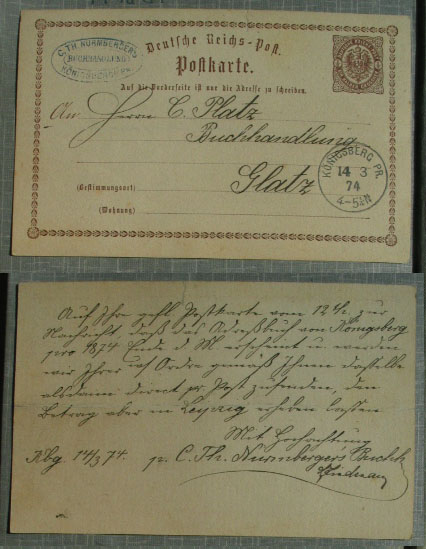 C. TH. NÜRMBERGERS
BUCHHANDLUNG
KÖNIGSBERG PR.
Deutsche Reichs-Post.
Postkarte.
Auf die Vorderseite ist nur die Adresse zu schreiben.
An Herrn C. Platz
Buchhandlung
(Bestimmungsort) Glatz
(Wohnung)
KÖNIGSBERG PR.
14 3
74
4-5 N
Auf Ihre gefl. Postkarte vom 12 zur
Nachricht daß das Adreßbuch von Königsberg
pro 1874 Ende d. M erscheint u werden
wir Ihrer Ordre gemäß Ihnen dasselbe
alsdann direct pr. Post zusenden, den
Betrag aber in Leipzig erheben lassen
Mit Hochachtung
Kbg. 14/3 74. p. C. Th. Nürmberger's Buchh